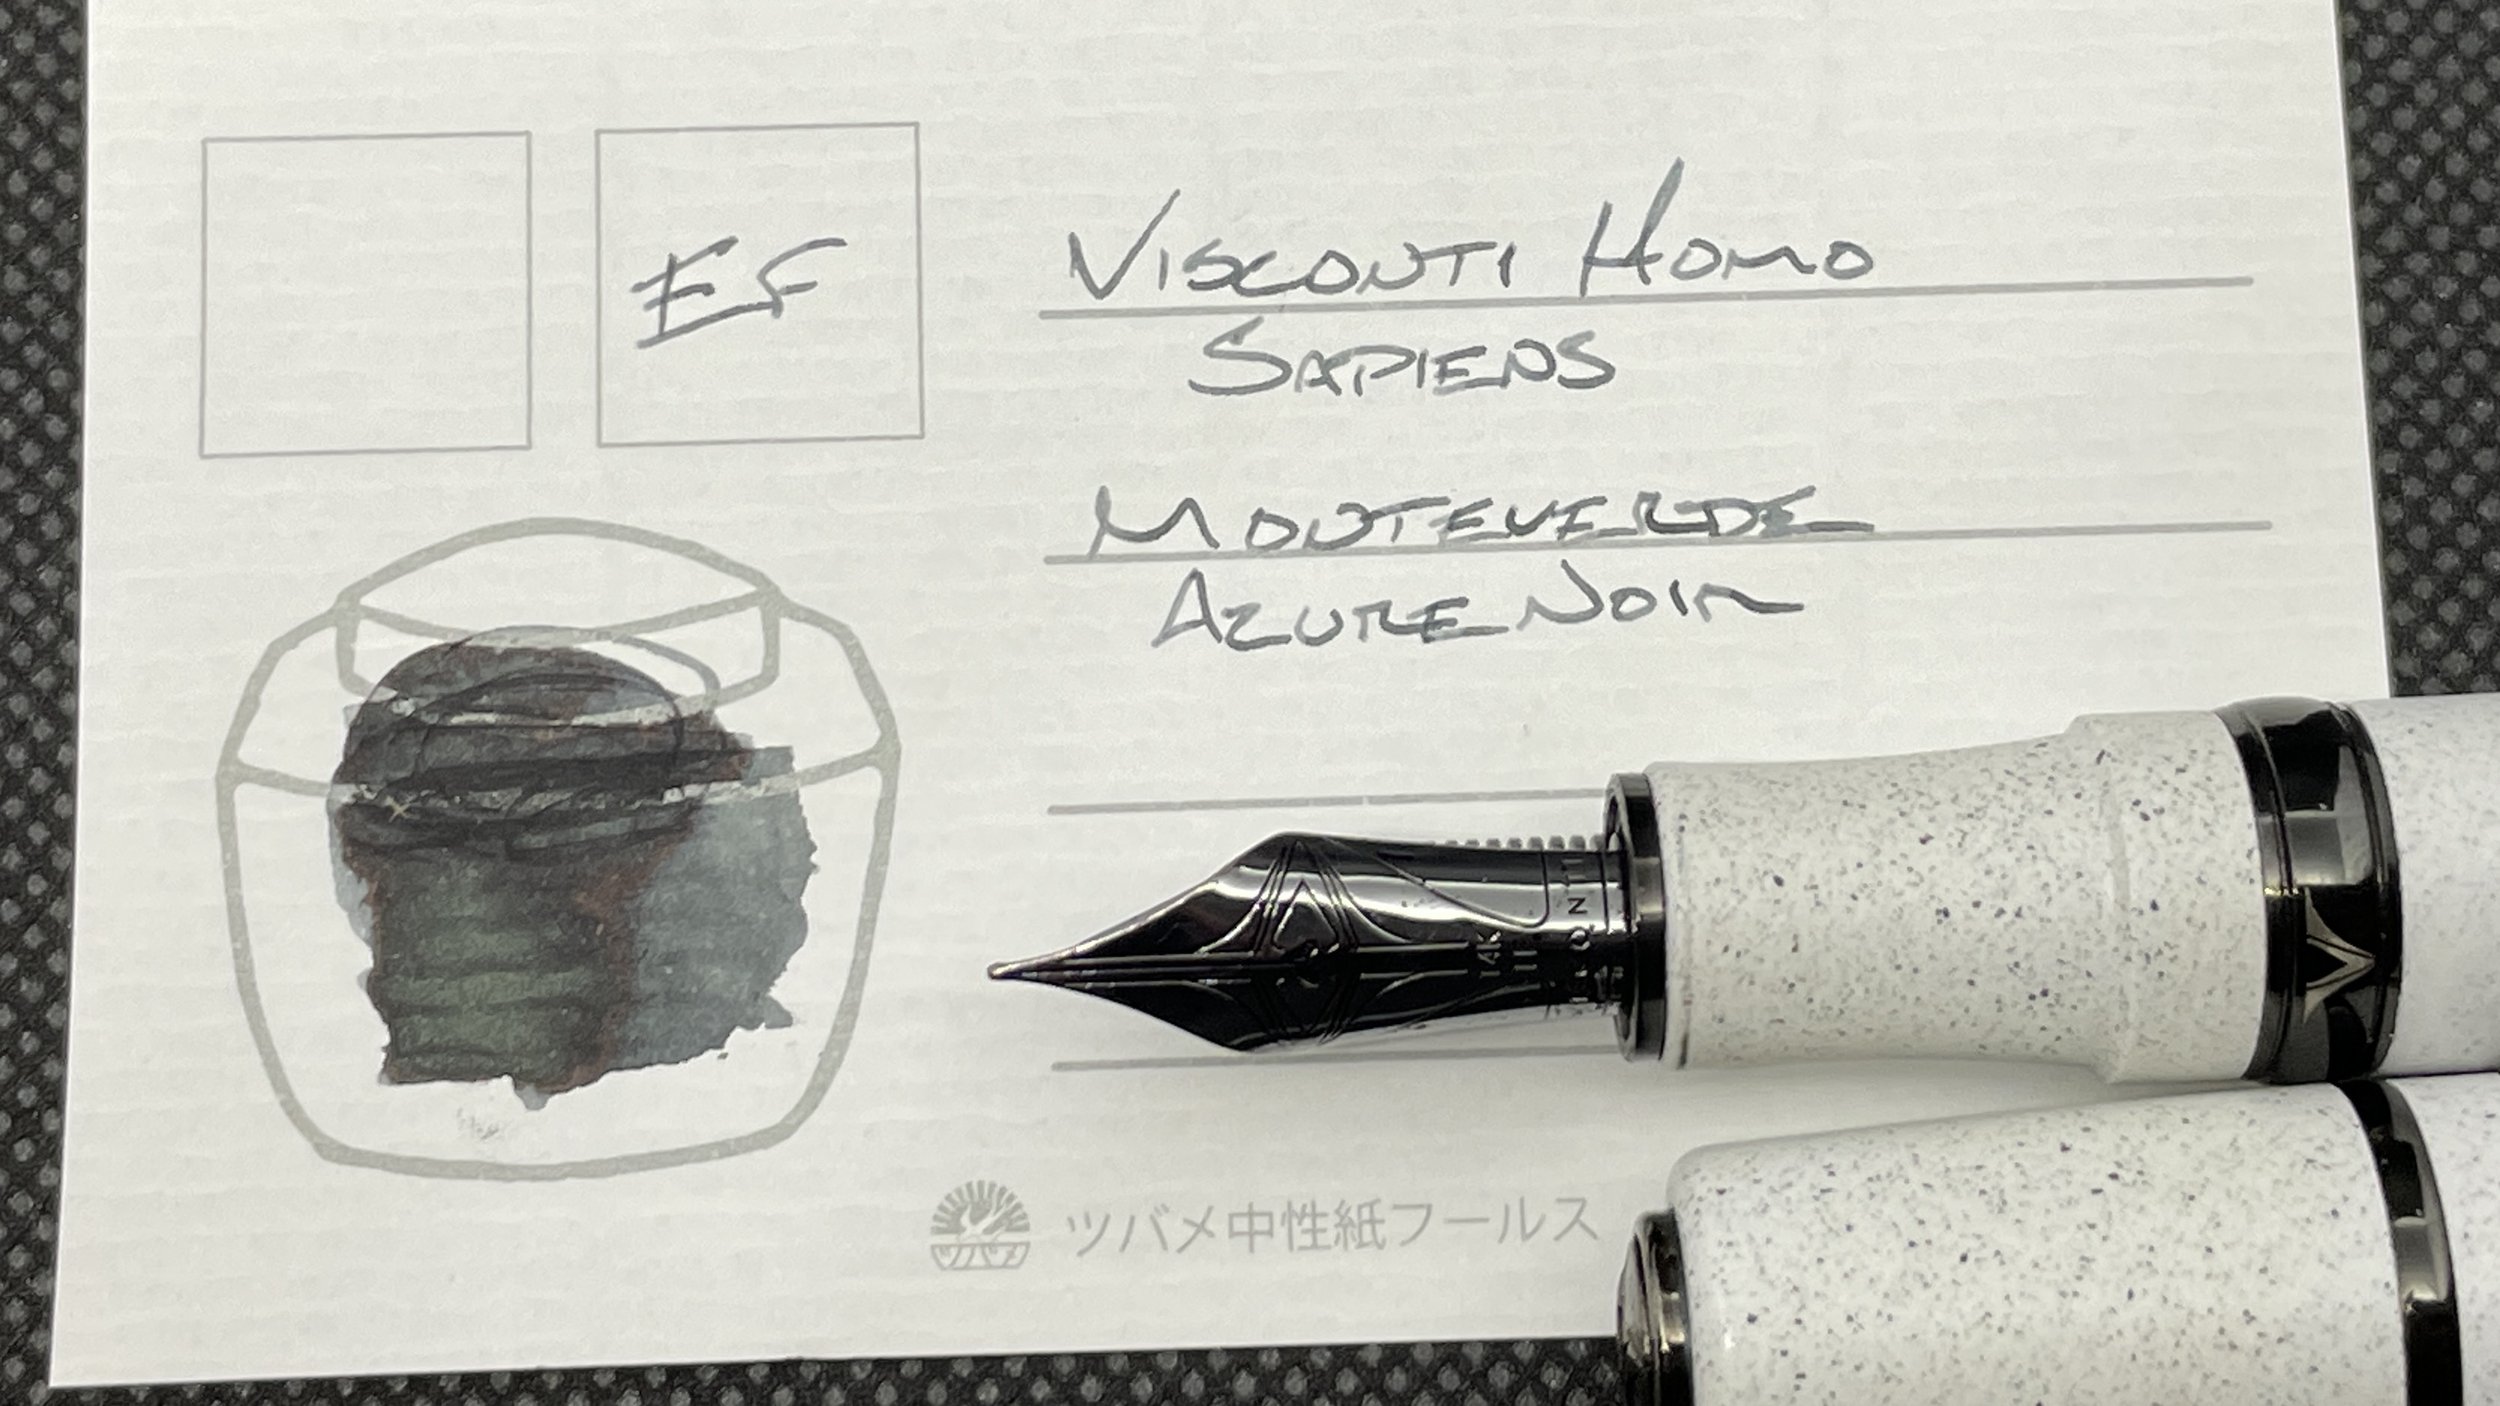 EF
VISCONTI HOMO
SAPIENS
MONTEVERDE
AZURE NOIR
14K
VISCONTI
ツバメ
ツバメ中性紙フールス